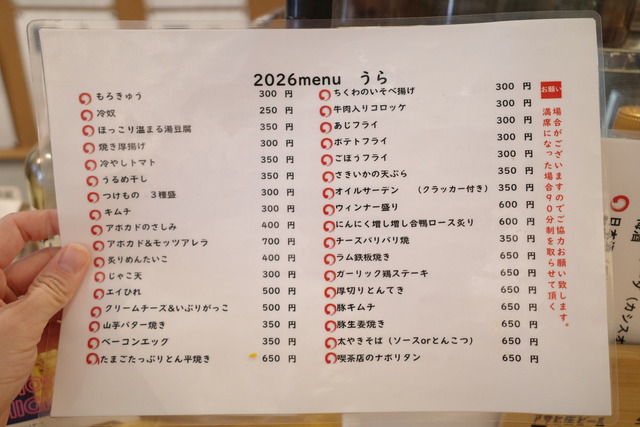 2026menu うら
もろきゅう 300 円
冷奴 250 円
ほっこり温まる湯豆腐 350 円
焼き厚揚げ 300 円
冷やしトマト 350 円
うるめ干し 350 円
つけもの 3種盛 300 円
キムチ 300 円
アボカドのさしみ 400 円
アボカド&モッツアレラ 700 円
炙りめんたいこ 400 円
じゃこ天 300 円
エイひれ 500 円
クリームチーズ&いぶりがっこ 500 円
山芋バター焼き 350 円
ベーコンエッグ 350 円
たまごたっぷりとん平焼き 650 円
ちくわのいそべ揚げ 300 円
牛肉入りコロッケ 300 円
あじフライ 300 円
ポテトフライ 300 円
ごぼうフライ 300 円
さきいかの天ぷら 350 円
オイルサーデン (クラッカー付き) 350 円
ウィンナー盛り 600 円
にんにく増し増し合鴨ロース炙り 600 円
チーズパリパリ焼 350 円
ラム鉄板焼き 650 円
ガーリック鶏ステーキ 650 円
厚切りとんてき 650 円
豚キムチ 650 円
豚生姜焼き 650 円
太やきそば (ソースorとんこつ) 650 円
喫茶店のナポリタン 650 円
お願い
満席になった場合90分制を取らせて頂く
場合がございますのでご協力お願い致します。